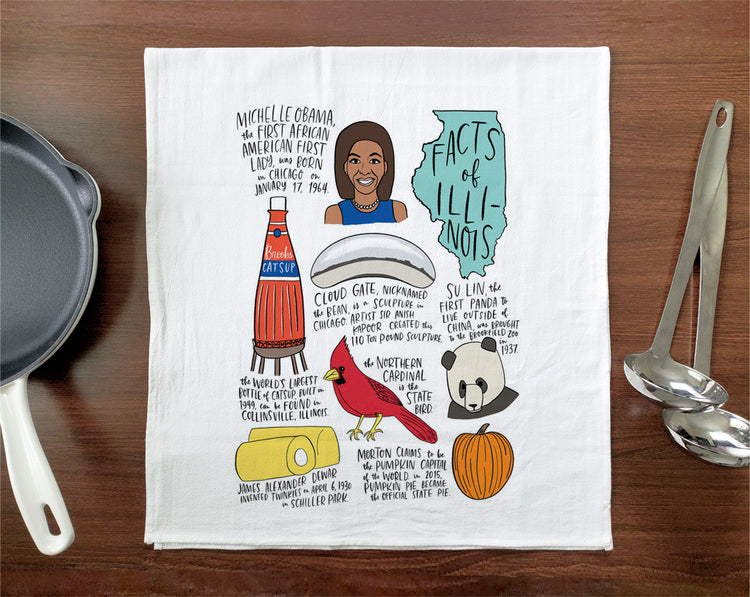 MICHELLE OBAMA,
the FIRST AFRICAN
AMERICAN FIRST
LADY, was BORN
in CHICAGO on
JANUARY 17, 1964.
FACTS
of
ILLI-
NOIS
Brooks
CATSUP
CLOUD GATE, NICKNAMED
the BEAN, is a SCULPTURE in
CHICAGO. ARTIST SIR ANISH
KAPOOR CREATED this
110 TON POUND SCULPTURE.
SU LIN, the
FIRST PANDA to
LIVE OUTSIDE of
CHINA, was BROUGHT
to the BROOKFIELD ZOO
in
1937.
the WORLD'S LARGEST
BOTTLE of CATSUP, BUILT in
1949, can be FOUND in
COLLINSVILLE, ILLINOIS.
the NORTHERN
CARDINAL
is the
STATE
BIRD.
JAMES ALEXANDER DEWAR
INVENTED TWINKIES on APRIL 6, 1930
in SCHILLER PARK.
MORTON CLAIMS to be
the PUMPKIN CAPITAL
of the WORLD. in 2015,
PUMPKIN PIE BECAME
the OFFICIAL STATE PIE.